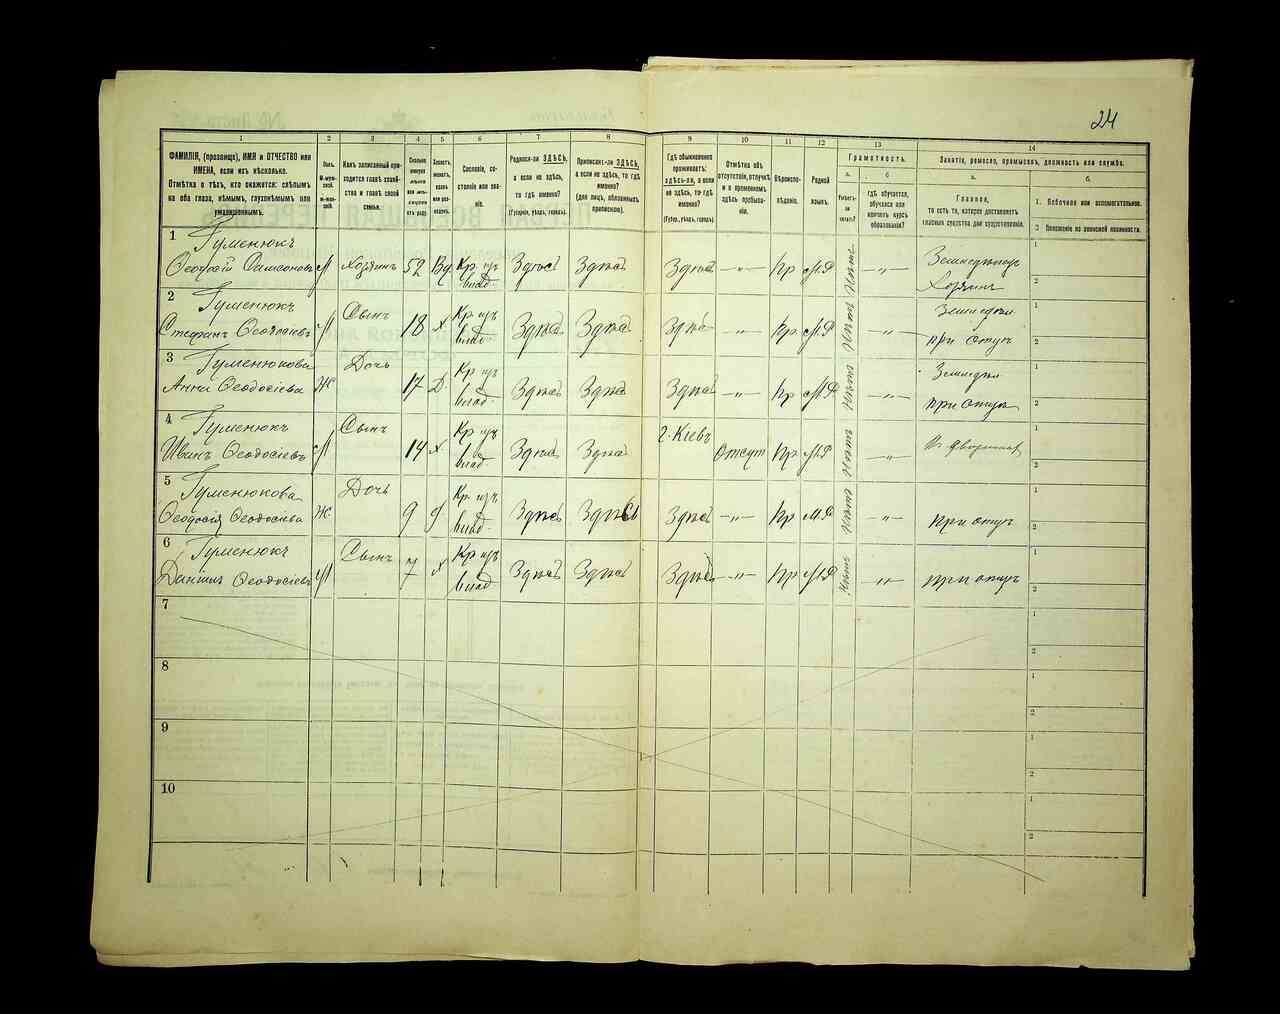 24
1 2 3 4 5 6 7 8 9 10 11 12 13 14
ФАМИЛІЯ, (прозвище), ИМЯ и ОТЧЕСТВО или
ИМЕНА, если ихъ нѣсколько.
Отмѣтка о тѣхъ, кто окажется: слѣпымъ
на оба глаза, нѣмымъ, глухонѣмымъ или
умалишеннымъ.
Какъ записанный при-
ходится главѣ хозяй-
ства и главѣ своей
семьи.
Сословіе, со-
стояніе или зва-
ніе.
Родился-ли ЗДѢСЬ,
а если не здѣсь,
то гдѣ именно?
(Губернія, уѣздъ, городъ).
Приписанъ-ли ЗДѢСЬ,
а если не здѣсь, то гдѣ
именно?
(для лицъ, обязанныхъ
припискою).
Гдѣ обыкновенно
проживаетъ:
здѣсь-ли, а если
не здѣсь, то гдѣ
именно?
(Губер., уѣздъ, городъ).
Отмѣтка объ
отсутствіи, отлучкѣ
и о временномъ
здѣсь пребыва-
ніи.
Вѣроиспо-
вѣданіе.
Родной
языкъ.
Грамотность.
а. б.
Умѣетъ-
ли
читать?
гдѣ обучается,
обучался или
кончилъ курсъ
образованія?
Занятіе, ремесло, промыселъ, должность или служба.
а. б.
Главное,
то есть то, которое доставляетъ
главныя средства для существованія.
1. Побочное или вспомогательное.
2 Положеніе по воинской повинности.
1 Гуменюкъ
Ѳеодосій Самсоновъ М Хозяинъ 52 Вд Кр изъ влад Здѣсь Здѣсь Здѣсь —„— Пр М.Р Нѣтъ —„— Земледѣлецъ Хозяинъ
2 Гуменюкъ
Стефанъ Ѳеодосіевъ М Сынъ 18 Х Кр изъ влад Здѣсь Здѣсь Здѣсь —„— Пр М.Р Нѣтъ —„— Земледѣл при отцѣ
3 Гуменюкова
Анна Ѳеодосіева Ж Дочь 17 Д Кр изъ влад Здѣсь Здѣсь Здѣсь —„— Пр М.Р Нѣтъ —„— Земледѣл при отцѣ
4 Гуменюкъ
Иванъ Ѳеодосіевъ М Сынъ 14 Х Кр изъ влад Здѣсь Здѣсь г. Кіевъ Отсут Пр М.Р Нѣтъ —„—
5 Гуменюкова
Ѳеодосія Ѳеодосіева Ж Дочь 9 Д Кр изъ влад Здѣсь Здѣсь Здѣсь —„— Пр М.Р Нѣтъ —„— при отцѣ
6 Гуменюкъ
Даніилъ Ѳеодосіевъ М Сынъ 7 Х Кр изъ влад Здѣсь Здѣсь Здѣсь —„— Пр М.Р Нѣтъ —„— при отцѣ
7
8
9
10